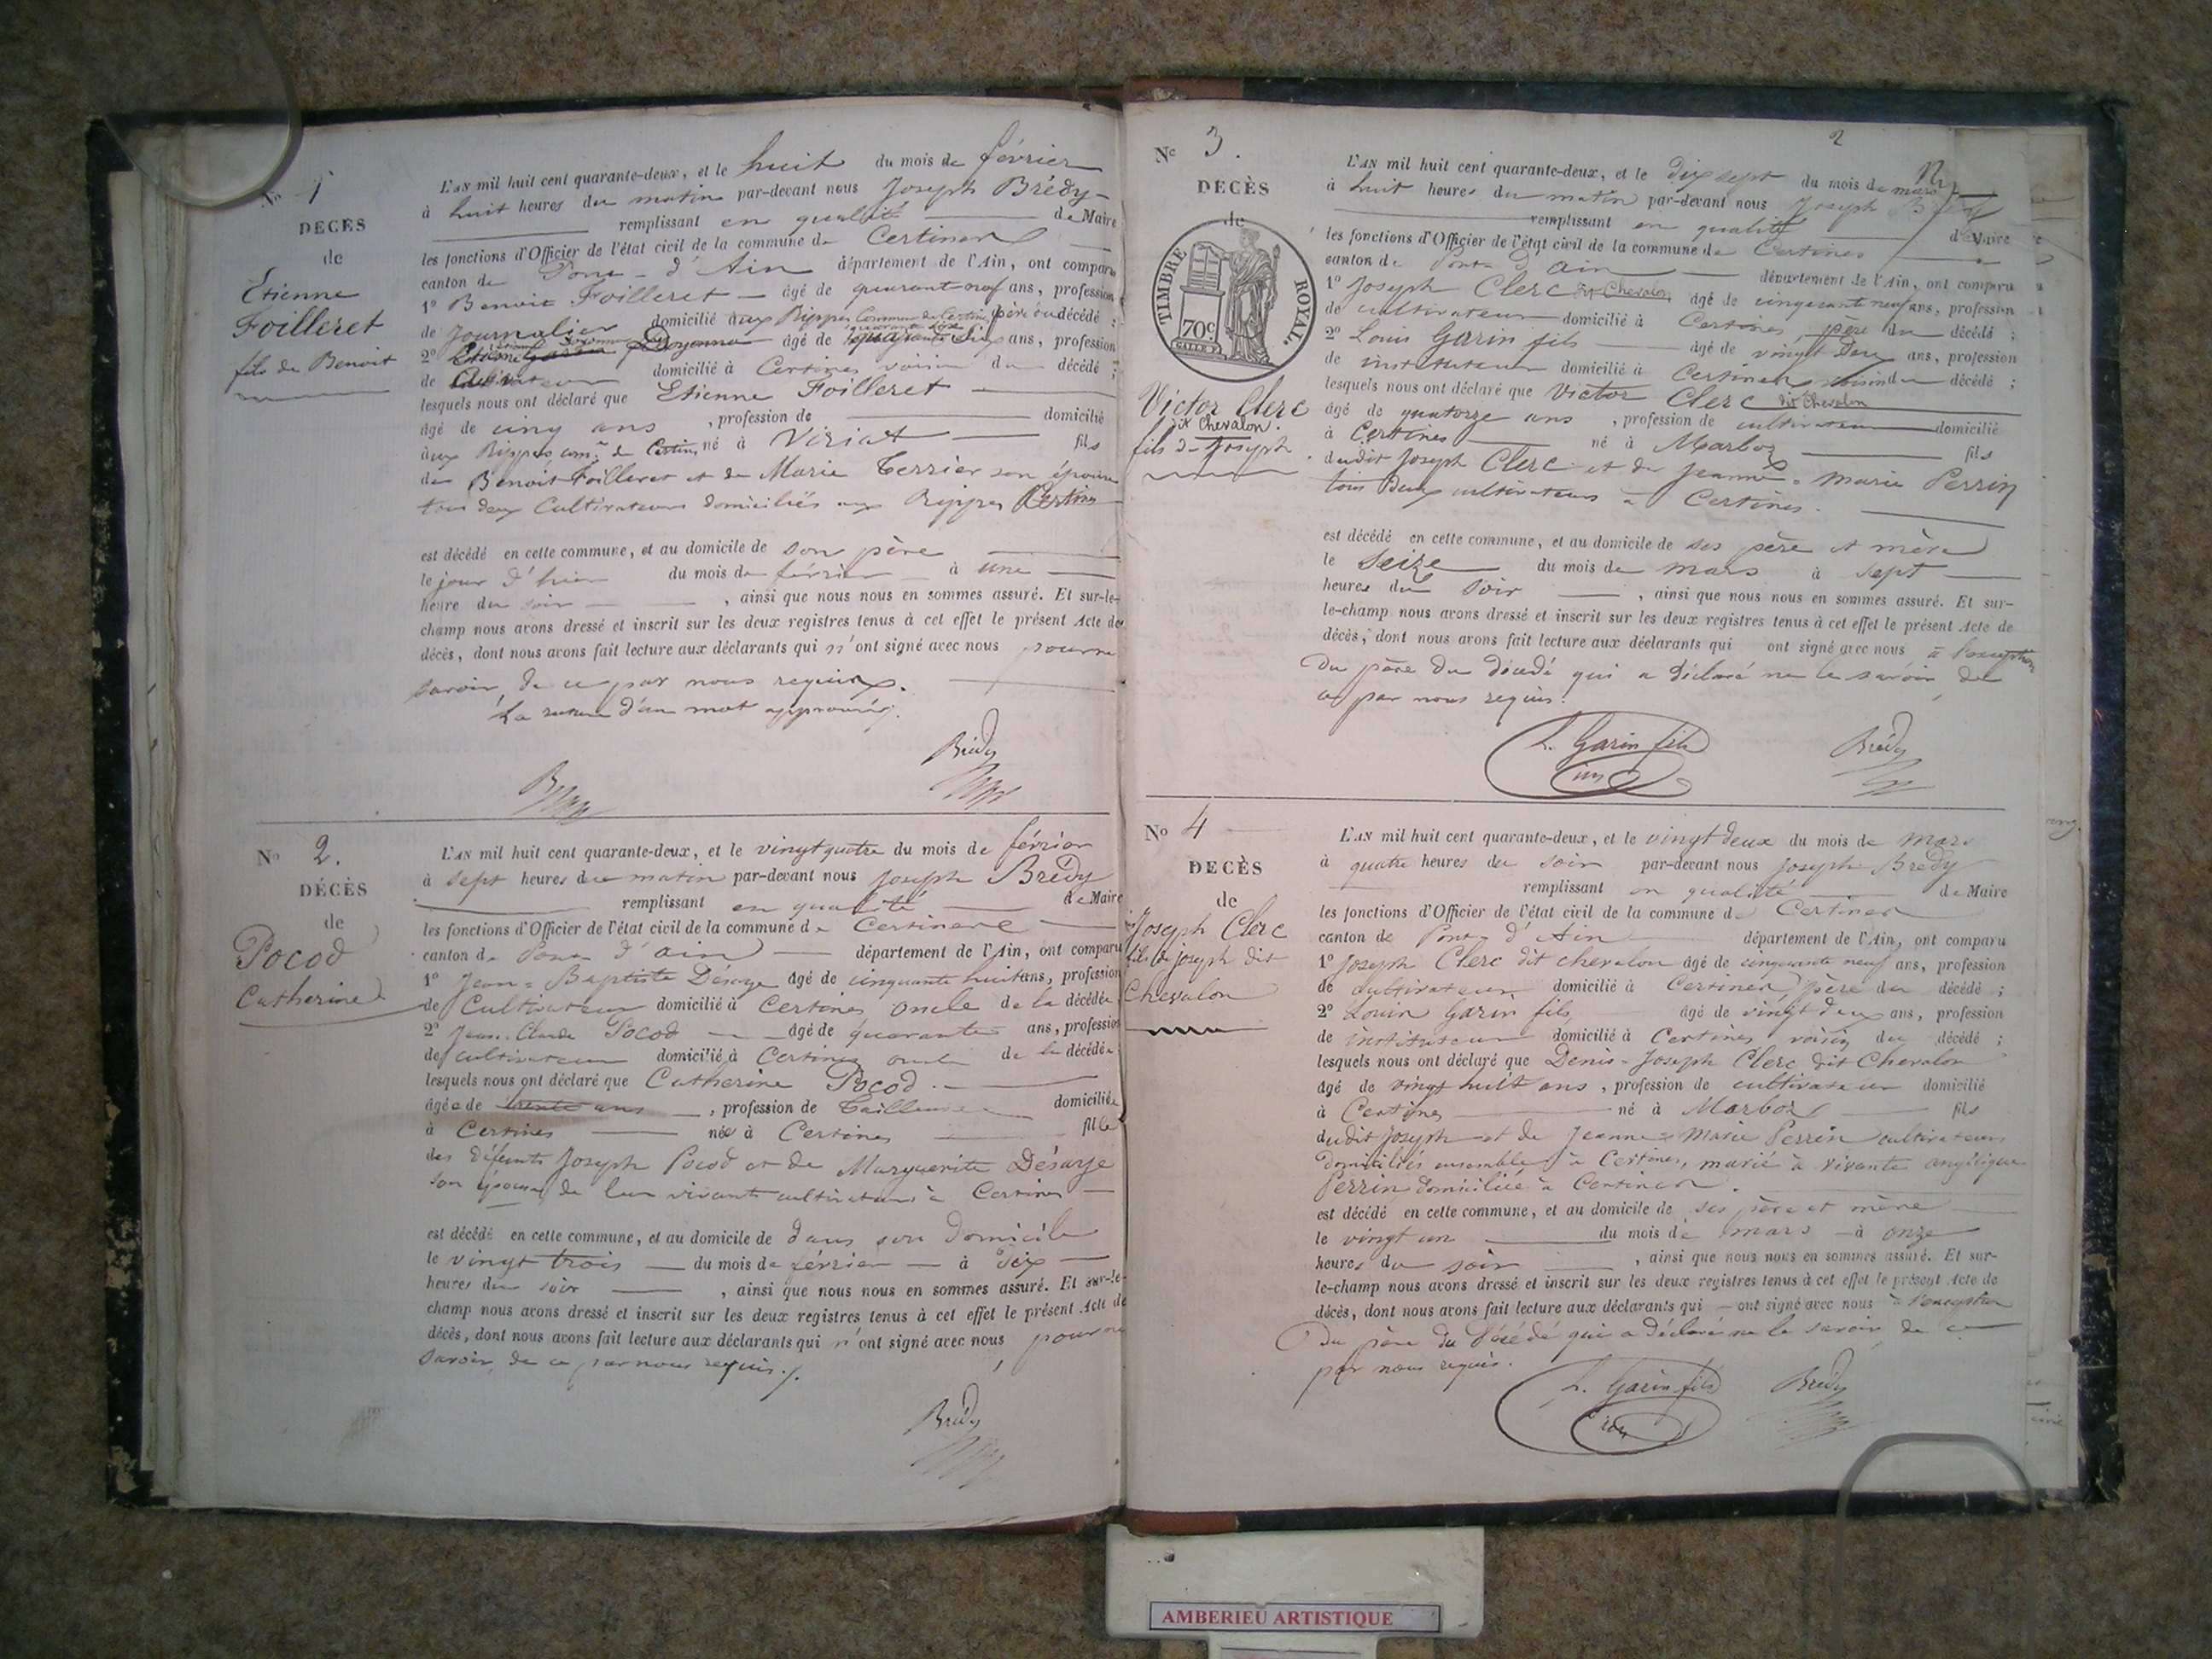 No 1
DECÈS
de
Etienne
Foilleret
fils de Benoit
L'AN mil huit cent quarante-deux, et le huit du mois de février
à huit heures du matin par-devant nous Joseph Brédy
remplissant en qualité de Maire
les fonctions d'Officier de l'état civil de la commune de Certines
canton de Pont-d'Ain département de l'Ain, ont comparu
1º Benoit Foilleret âgé de quarant neuf ans, profession
de Journalier domicilié aux Rippes Commune de Certines père du décédé ;
2º âgé de ans, profession
de domicilié à Certines voisin du décédé ;
lesquels nous ont déclaré que Etienne Foilleret
âgé de cinq ans , profession de domicilié
aux Rippes com.ne de Certines né à Viriat fils
de Benoit Foilleret et de Marie Terrier son épouse
tous deux Cultivateurs domiciliés aux Rippes Certines
est décédé en cette commune, et au domicile de son père
le jour d'hier du mois de février à une
heure du soir , ainsi que nous nous en sommes assuré. Et sur-le-
champ nous avons dressé et inscrit sur les deux registres tenus à cet effet le présent Acte de
décès, dont nous avons fait lecture aux déclarants qui n'ont signé avec nous pour ne
savoir, de ce par nous requis.
La rature d'un mot approuvée.
Brédy
No 2.
DÉCÈS
de
Pocod
Catherine
L'AN mil huit cent quarante-deux, et le vingt quatre du mois de février
à sept heures du matin par-devant nous Joseph Brédy
remplissant en qualité de Maire
les fonctions d'Officier de l'état civil de la commune de Certines
canton de Pont d'ain département de l'Ain, ont comparu
1º Jean-Baptiste Désarge âgé de cinquante huit ans, profession
de Cultivateur domicilié à Certines oncle de la décédée
2º Jean-Claude Pocod âgé de quarante ans, profession
de cultivateur domicilié à Certines oncle de la décédée
lesquels nous ont déclaré que Catherine Pocod
âgée de trente ans , profession de Tailleuse domiciliée
à Certines née à Certines fille
des défunts Joseph Pocod et de Marguerite Désarge
son épouse, de leur vivant cultivateurs à Certines
est décédé en cette commune, et au domicile de dans son domicile
le vingt trois du mois de février à dix
heures du soir , ainsi que nous nous en sommes assuré. Et sur-le-
champ nous avons dressé et inscrit sur les deux registres tenus à cet effet le présent Acte de
décès, dont nous avons fait lecture aux déclarants qui n'ont signé avec nous pour ne
savoir, de ce par nous requis.
Brédy
2
No 3.
DECÈS
de
TIMBRE ROYAL.
70c.
Victor Clerc
dit Chevalon.
fils de Joseph
L'AN mil huit cent quarante-deux, et le Dix sept du mois de mars
à huit heures du matin par-devant nous Joseph Brédy
remplissant en qualité de Maire
les fonctions d'Officier de l'état civil de la commune de Certines
canton de Pont d'Ain département de l'Ain, ont comparu
1º Joseph Clerc dit Chevalon âgé de cinquante neuf ans, profession
de cultivateur domicilié à Certines père du décédé ;
2º Louis Garin fils âgé de vingt Deux ans, profession
de instituteur domicilié à Certines voisin du décédé ;
lesquels nous ont déclaré que Victor Clerc dit Chevalon
âgé de quatorze ans , profession de cultivateur domicilié
à Certines né à Marboz fils
dudit Joseph Clerc et de Jeanne-Marie Perrin
tous deux cultivateurs à Certines.
est décédé en cette commune, et au domicile de ses père et mère
le Seize du mois de mars à Sept
heures du Soir , ainsi que nous nous en sommes assuré. Et sur-
le-champ nous avons dressé et inscrit sur les deux registres tenus à cet effet le présent Acte de
décès, dont nous avons fait lecture aux déclarants qui ont signé avec nous à l'exception
Du père du décédé qui a déclaré ne le savoir, de
ce par nous requis.
L. Garin fils
Brédy
No 4
DECÈS
de
Joseph Clerc
fils de joseph dit
Chevalon
L'AN mil huit cent quarante-deux, et le vingt deux du mois de Mars
à quatre heures du soir par-devant nous Joseph Brédy
remplissant en qualité de Maire
les fonctions d'Officier de l'état civil de la commune de Certines
canton de Pont-d'Ain département de l'Ain, ont comparu
1º Joseph Clerc dit chevalon âgé de cinquante neuf ans, profession
de cultivateur domicilié à Certines père du décédé ;
2º Louis Garin fils âgé de vingt deux ans, profession
de instituteur domicilié à Certines, voisin du décédé ;
lesquels nous ont déclaré que Denis-Joseph Clerc dit Chevalon
âgé de vingt huit ans , profession de cultivateur domicilié
à Certines né à Marboz fils
dudit Joseph et de Jeanne-Marie Perrin cultivateurs
domiciliés ensemble à Certines, marié à vivante angélique
Perrin domiciliée à Certines.
est décédé en cette commune, et au domicile de ses père et mère
le vingt un du mois de mars à onze
heures du soir , ainsi que nous nous en sommes assuré. Et sur-
le-champ nous avons dressé et inscrit sur les deux registres tenus à cet effet le présent Acte de
décès, dont nous avons fait lecture aux déclarants qui ont signé avec nous à l'exception
Du père du Décédé qui a Déclaré ne le savoir de ce
par nous requis.
L. Garin fils
Brédy
AMBERIEU ARTISTIQUE